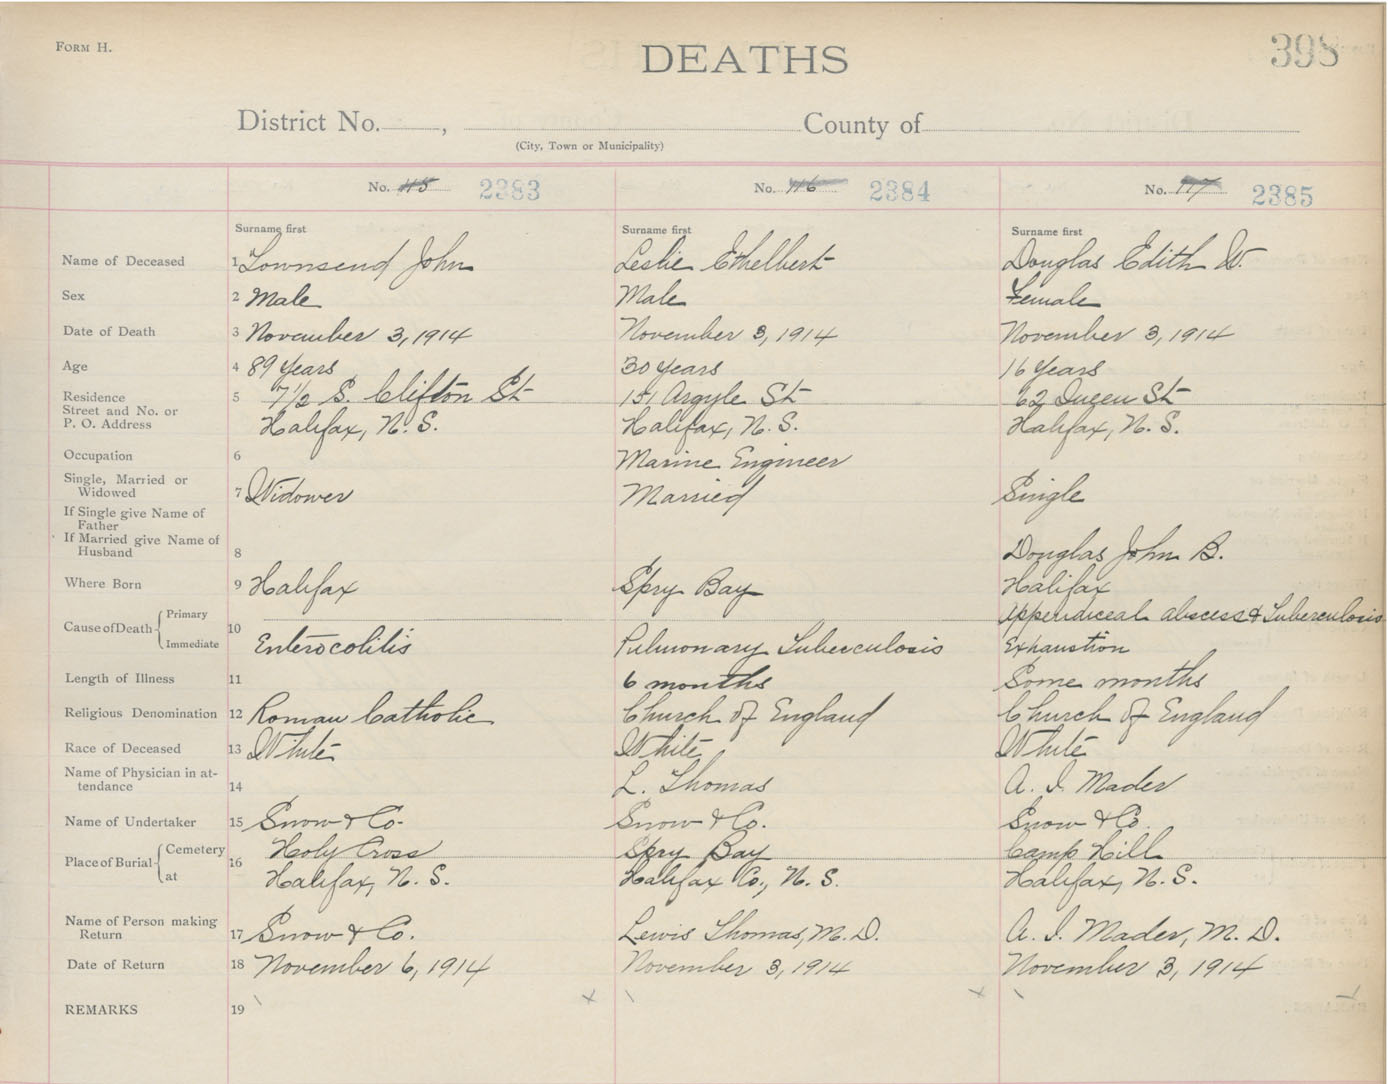 FORM H.
DEATHS
398
District No. , County of
(City, Town or Municipality)
No. 115 2383 No. 116 2384 No. 117 2385
Surname first Surname first Surname first
Name of Deceased 1 Townsend John Leslie Ethelbert Douglas Edith W.
Sex 2 Male Male Female
Date of Death 3 November 3, 1914 November 3, 1914 November 3, 1914
Age 4 89 years 30 years 16 years
Residence 5 7 1/2 S. Clifton St 151 Argyle St 62 Queen St
Street and No. or
P. O. Address Halifax, N. S. Halifax, N. S. Halifax, N. S.
Occupation 6 Marine Engineer
Single, Married or
Widowed 7 Widower Married Single
If Single give Name of
Father
If Married give Name of
Husband 8 Douglas John B.
Where Born 9 Halifax Spry Bay Halifax
Cause of Death Primary 10 Appendiceal abscess & Tuberculosis
Immediate Enterocolitis Pulmonary Tuberculosis Exhaustion
Length of Illness 11 6 months Some months
Religious Denomination 12 Roman Catholic Church of England Church of England
Race of Deceased 13 White White White
Name of Physician in at-
tendance 14 L. Thomas A. I. Mader
Name of Undertaker 15 Snow & Co. Snow & Co. Snow & Co.
Place of Burial Cemetery 16 Holy Cross Spry Bay Camp Hill
at Halifax, N. S. Halifax Co., N. S. Halifax, N. S.
Name of Person making
Return 17 Snow & Co. Lewis Thomas, M. D. A. I. Mader, M. D.
Date of Return 18 November 6, 1914 November 3, 1914 November 3, 1914
REMARKS 19